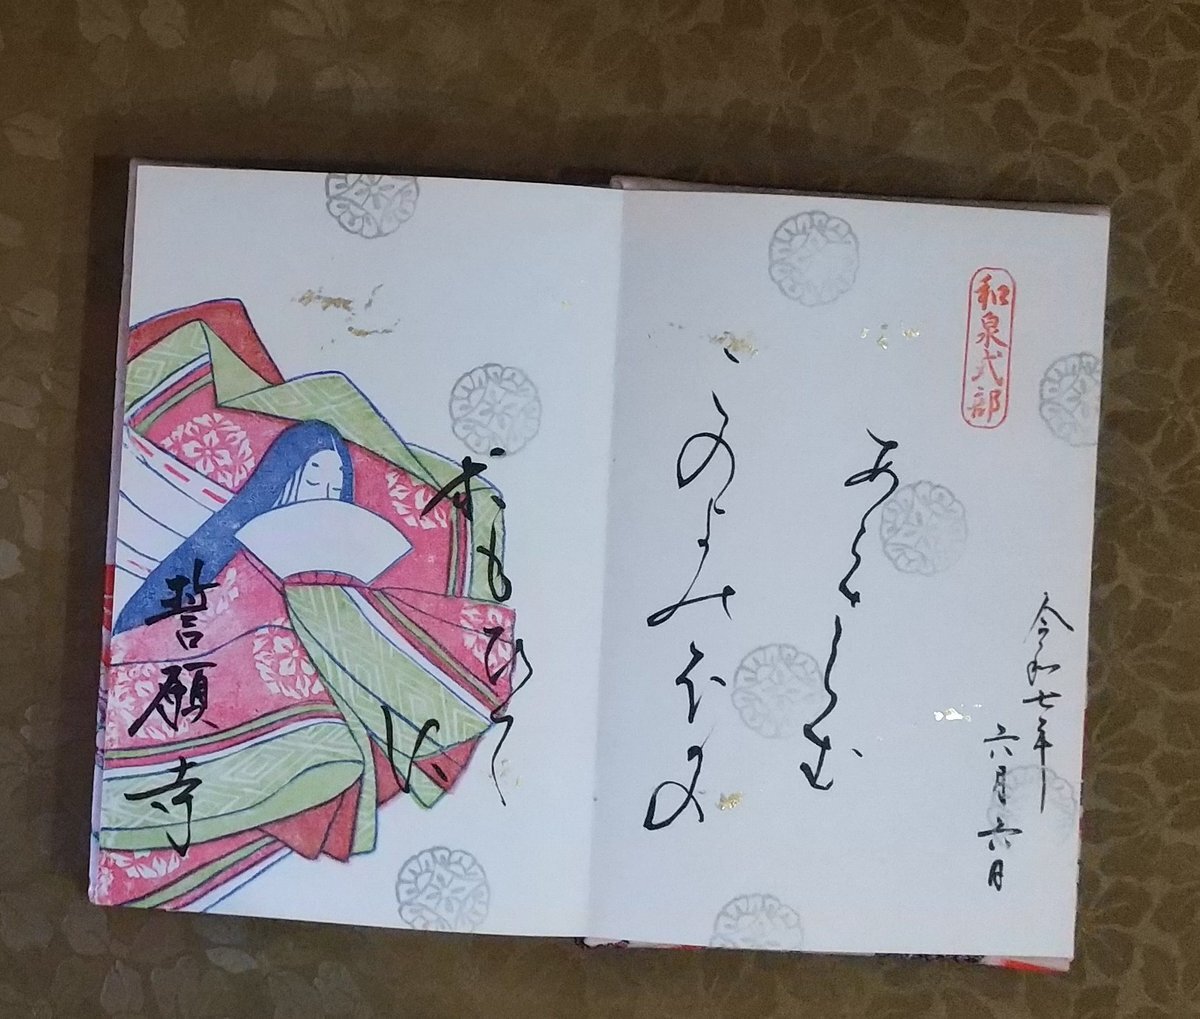 令和七年
六月六日
和泉式部
あらさらむ
このよのほかの
於もひて
に
誓願寺